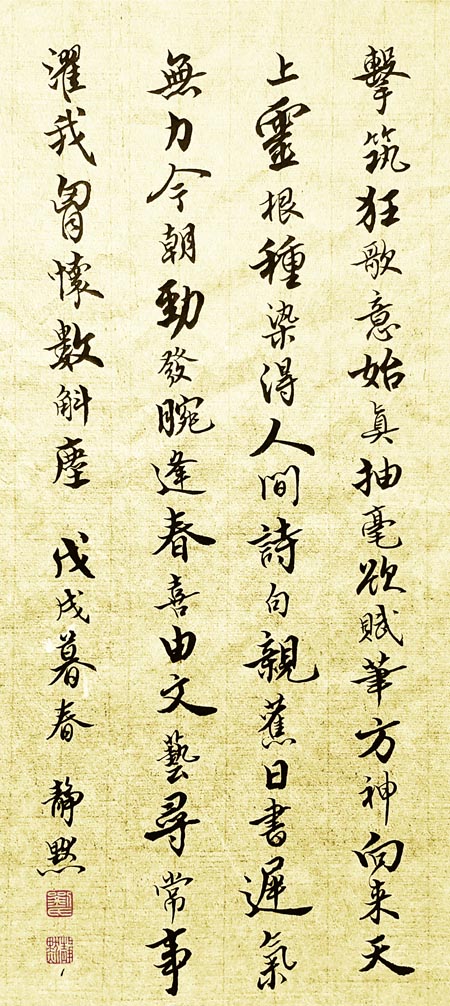 擊筑狂歌意始真抽毫欲賦筆方神向来天
上靈根種染得人间詩句親蕉日書遲氣
無力今朝勁發腕逢春喜由文藝尋常事
濯我胷懷數斛塵 戊戌暮春 静默